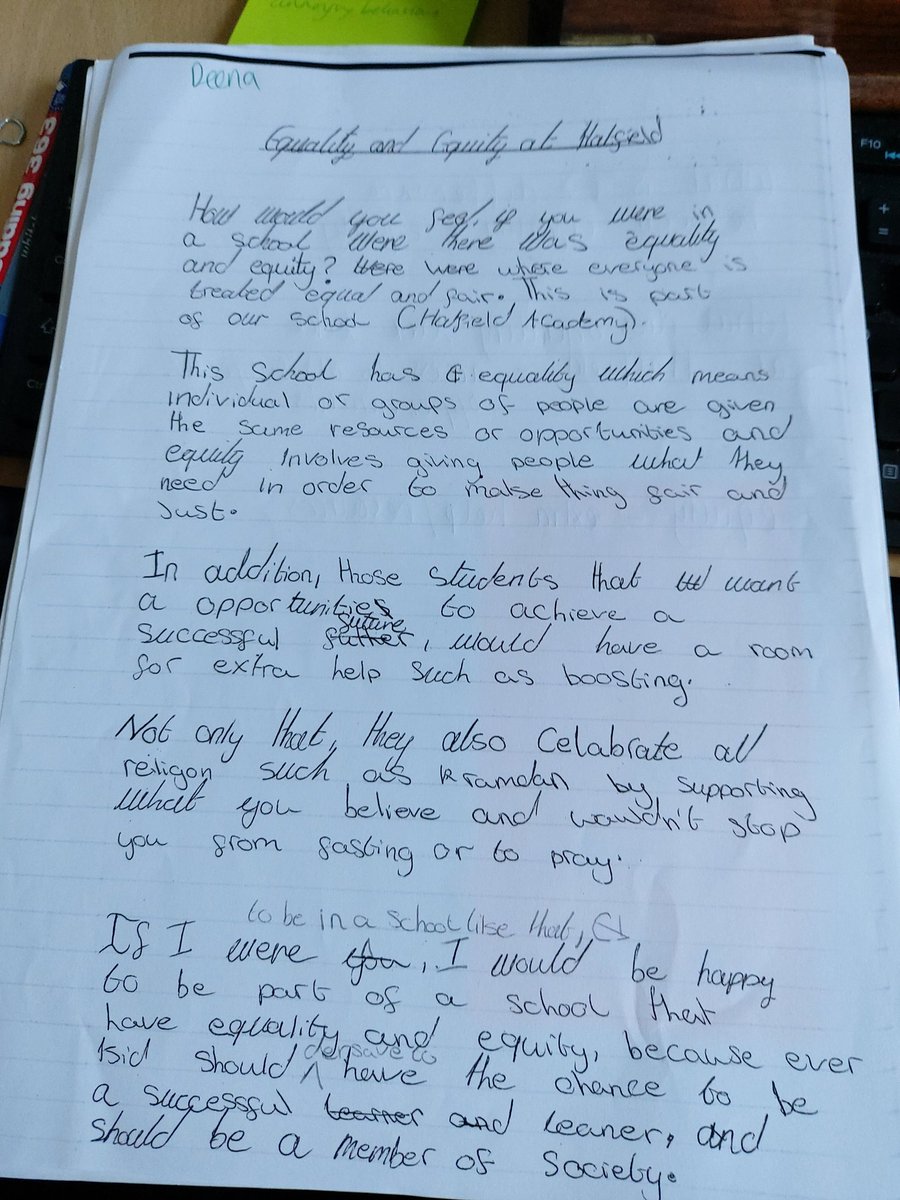 annoying behaviour
Deena
Equality and Equity at Halfield
How would you feel if you were in
a school were there was equality
and equity? Were were where everyone is
treated equal and fair. This is part
of our school (Halfield Academy).
This school has E equality which means
individual or groups of people are given
the same resources or opportunities and
equity involves giving people what they
need in order to make thing fair and
just.
In addition, those students that want
a opportunities to achieve a
future
successful futher, would have a room
for extra help such as boosting.
Not only that, they also celabrate all
religon such as R ramdan by supporting
what you believe and wouldn't stop
you from fasting or to pray.
to be in a school like that,
If I were you, I would be happy
to be part of a school that
have equality and equity, because ever
dersave to
kid should have the chance to be
a successful learner and leaner, and
should be a member of society.
F10
Ctrl